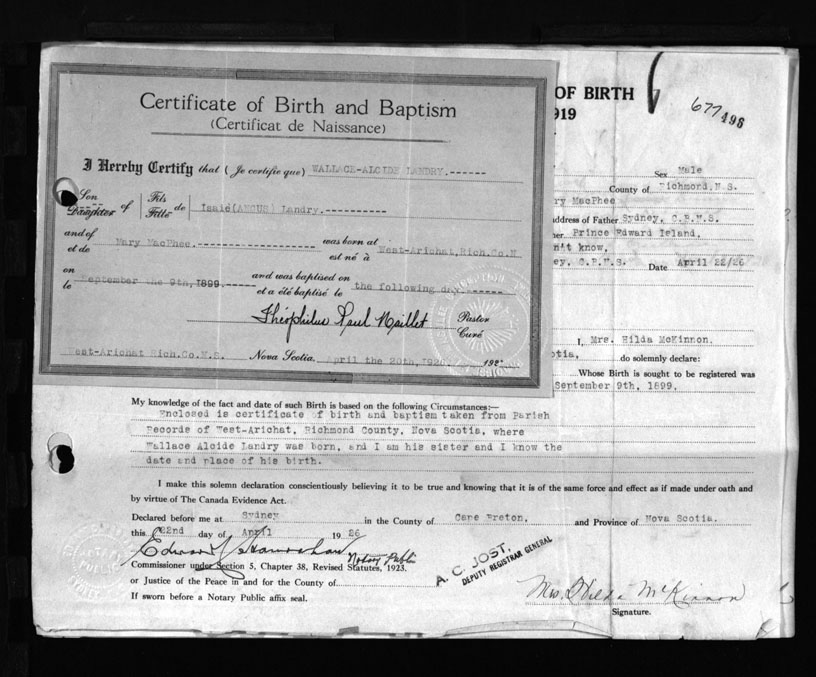 Certificate of Birth and Baptism
(Certificat de Naissance)
I Hereby Certify that (Je certifie que) WALLACE-ALCIDE LANDRY.------
Son Daughter of Fils Fille de Isaié(ANGUS) Landry.---------
and of et de Mary MacPhee.------------ was born at est né à West-Arichat,Rich.Co.N
on le September the 9th,1899.----- and was baptised on et a été baptisé le the following day------
Théophilus Paul Maillet Pastor Curé
West-Arichat Rich.Co.N.S. Nova Scotia, April the 20th,192 192
OF BIRTH
919
677
496
Sex Male
County of Richmond,N.S.
ry MacPhee
address of Father Sydney, C.B.N.S.
her Prince Edward Island,
n't know,
ey, C.B.N.S. Date April 22/26
I, Mrs. Hilda McKinnon.
otia, do solemnly declare:
Whose Birth is sought to be registered was
September 9th, 1899.
My knowledge of the fact and date of such Birth is based on the following Circumstances:—
Enclosed is certificate of birth and baptism taken from Parish
Records of West-Arichat, Richmond County, Nova Scotia, where
Wallace Alcide Landry was born, and I am his sister and I know the
date and place of his birth.
I make this solemn declaration conscientiously believing it to be true and knowing that it is of the same force and effect as if made under oath and
by virtue of The Canada Evidence Act.
Declared before me at Sydney in the County of Cape Breton, and Province of Nova Scotia.
this 22nd day of April 1926
Edward Notary Public
Commissioner under Section 5, Chapter 38, Revised Statutes, 1923.
or Justice of the Peace in and for the County of
If sworn before a Notary Public affix seal.
A. C. JOST,
DEPUTY REGISTRAR GENERAL
Mrs. Hilda McKinnon
Signature.